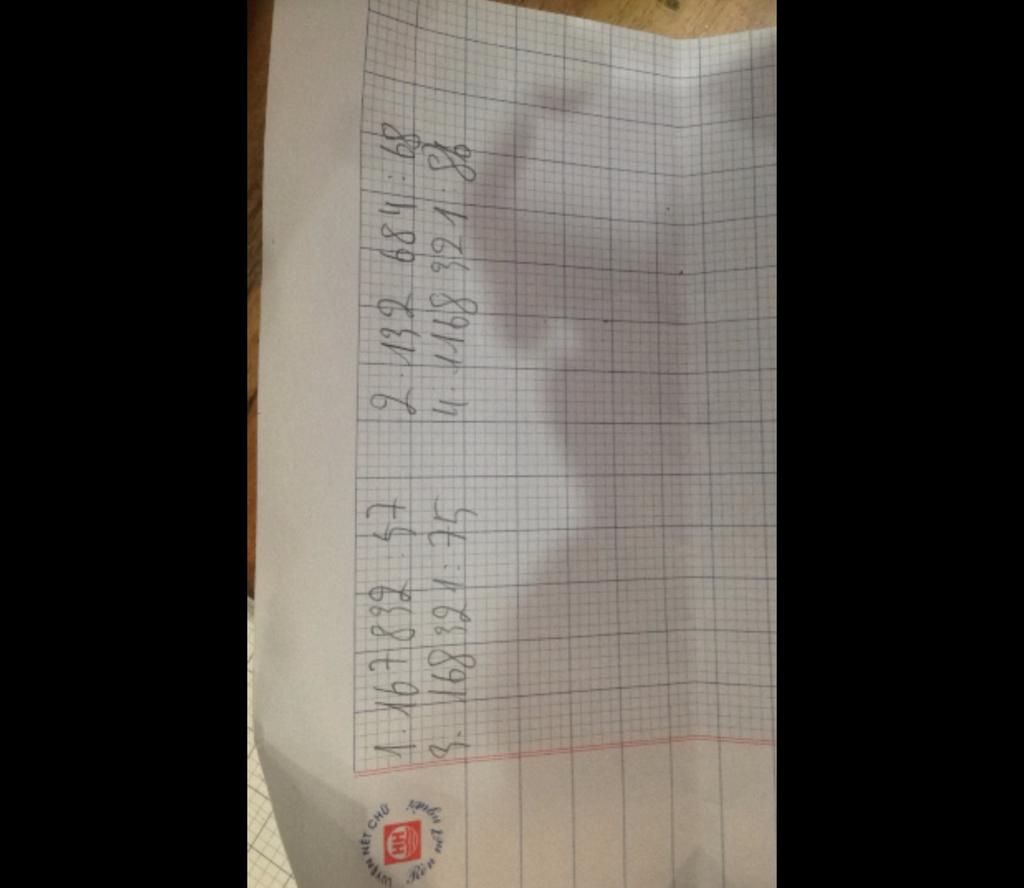 1. 167 832 : 57
2. 132 684 : 68
3. 168 321 : 75
4. 1168 321 : 86
LUYỆN NÉT CHỮ
HH